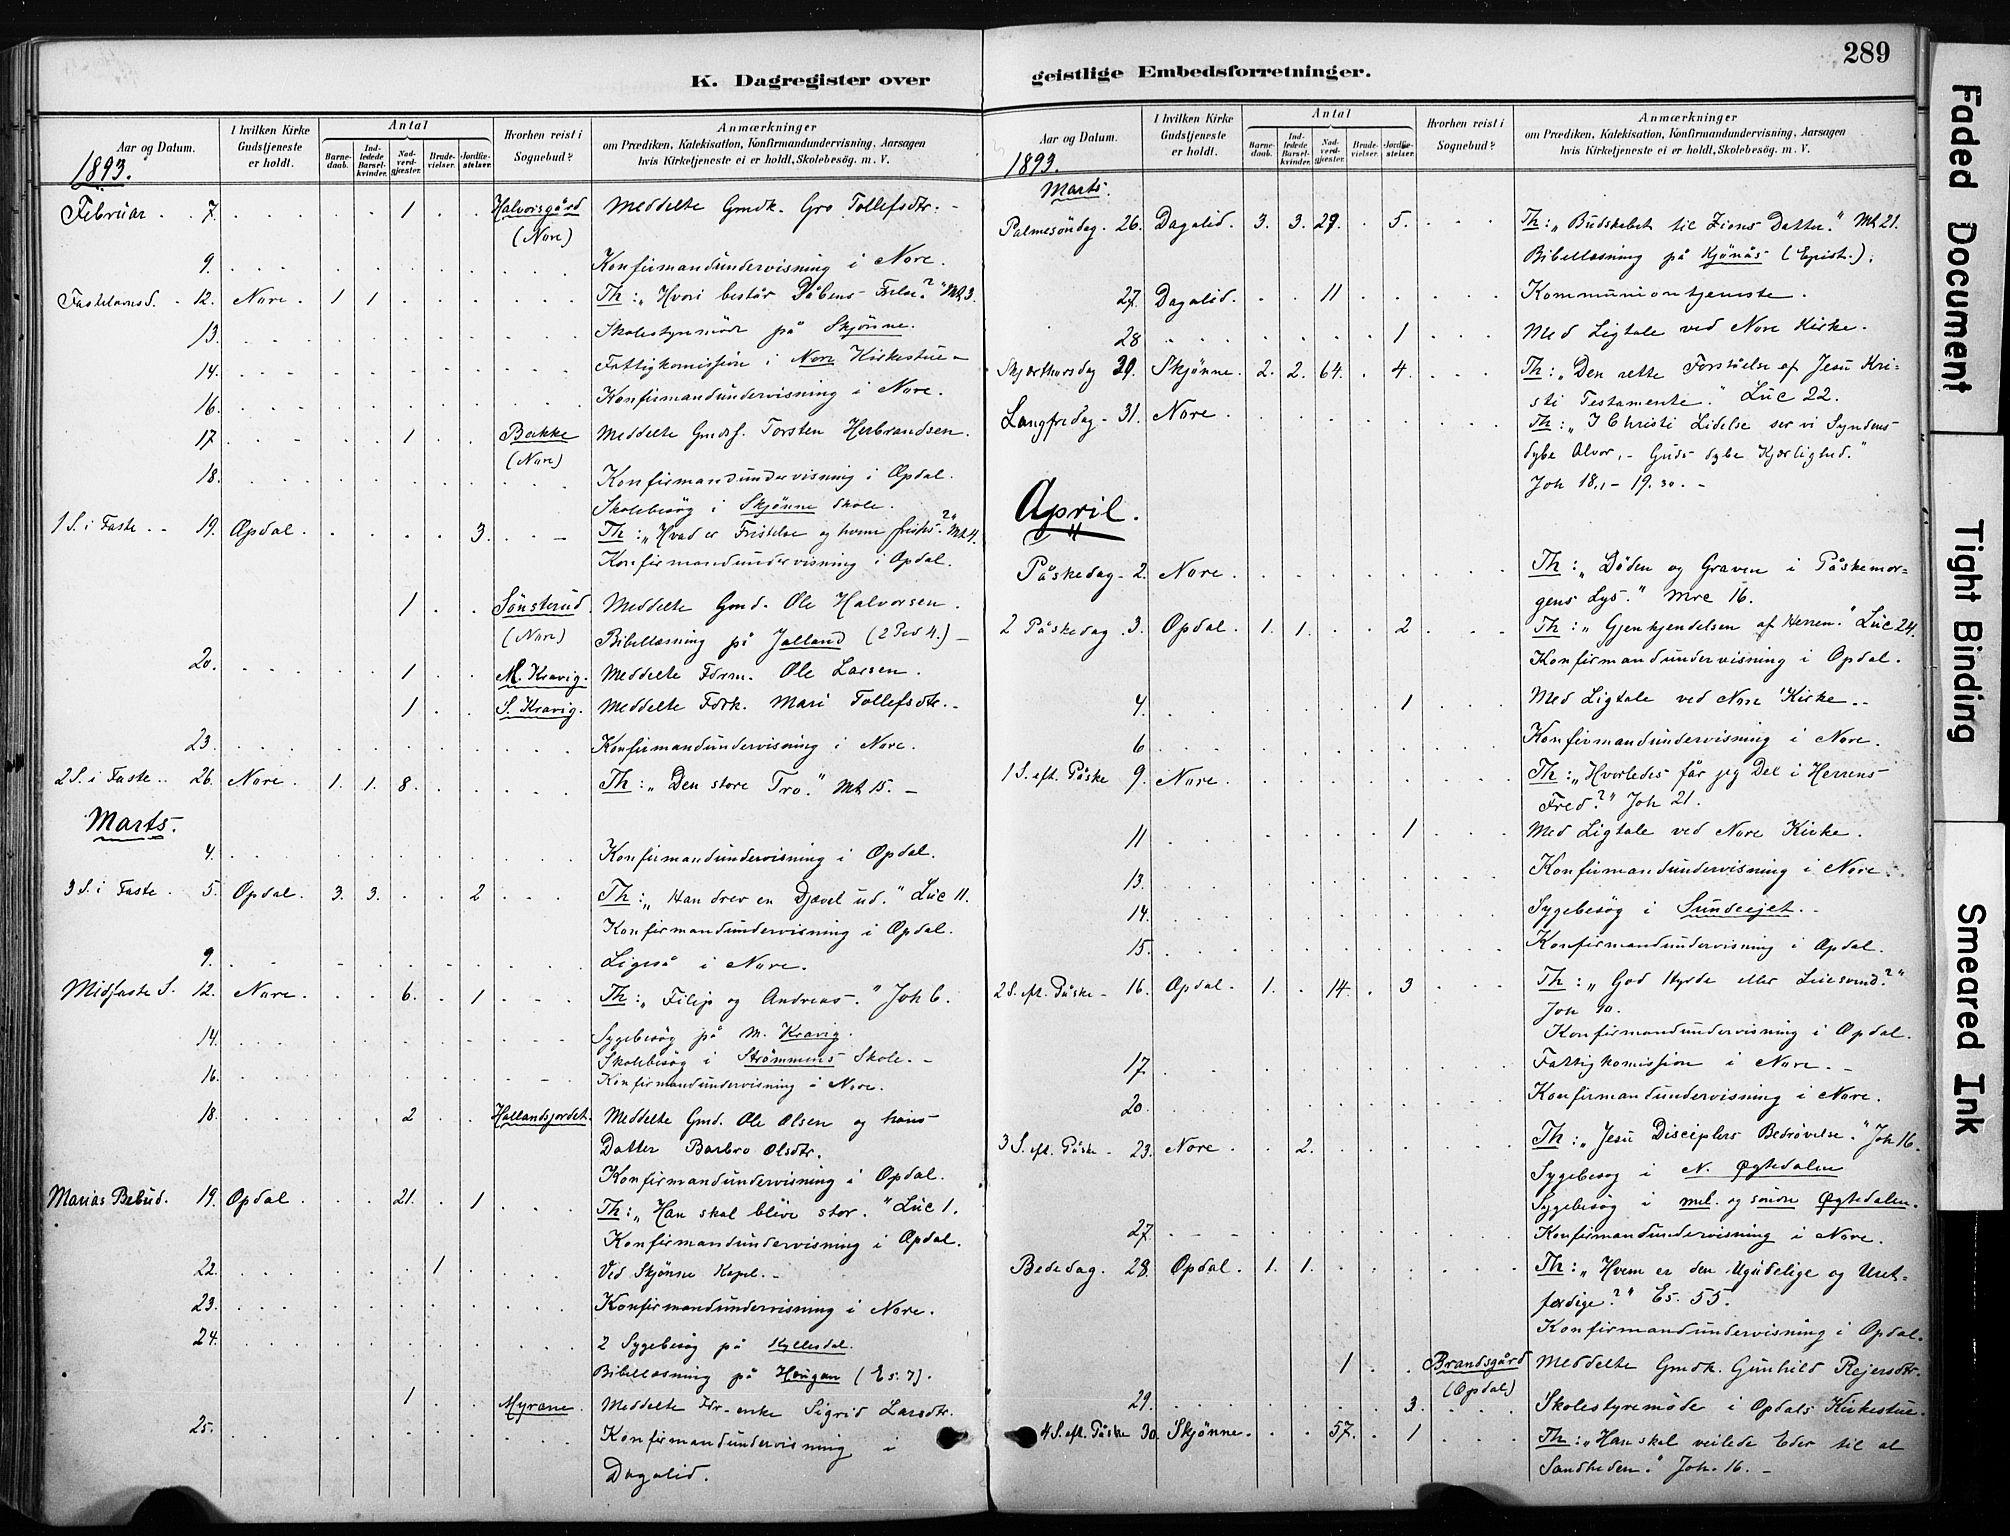 289
K. Dagregister over geistlige Embedsforretninger.
Aar og Datum.
I hvilken Kirke Gudstjeneste er holdt.
Antal
Barnedaab.
Indledede Barselkvinder.
Nadverdgjæster.
Brudevielser.
Jordfæstelser.
Hvorhen reist i Sognebud?
Anmærkninger
om Prædiken, Katekisation, Konfirmandundervisning, Aarsagen
hvis Kirketjeneste ei er holdt, Skolebesøg. m. V.
1893.
Februar . . 7. 1 Halvorsgård Meddelte Gmdk. Gro Tollefsdtr. –
(Nore)
9. Konfirmandundervisning i Nore.
Fastelavnsd. - 12. Nore . 1 1 Th: „Hvori består Dåbens Frelse?" Mt 3.
13. Skolestyremøde på Skjønne.
14. Fattigkomission i Nore Kirkestue –
16. Konfirmandundervisning i Nore.
17. 1 Bakke Meddelte Gmdsf. Torsten Herbrandsen.
(Nore)
18. Konfirmandundervisning i Opdal.
Skolebesøg i Skjønne Skole.
1 S. i Faste - - 19. Opdal . 3. Th: „Hvad er Fristelse og hvem fristes?" Mt 4.
Konfirmandundervisning i Opdal.
1 Sønsterud. Meddelte Gmd. Ole Halvorsen.
(Nore) Bibellæsning på Jalland (2 Ped 4.) –
20. 1 M. Kravig. Meddelte Fdrm. Ole Larsen.
1 S. Kravig. Meddelte Fdrk. Mari Tollefsdtr. –
23. Konfirmandundervisning i Nore.
2 S. i Faste . . 26. Nore . 1. 1. 8. Th: „Den store Tro." Mt 15. –
Marts.
4. Konfirmandundervisning i Opdal.
3 S. i Faste . 5. Opdal . 3. 3. 2 Th: „Han drev en Djævel ud." Luc 11.
Konfirmandundervisning i Opdal.
9. Ligeså i Nore.
Midfaste S. 12. Nore . 6. 1 Th: „Filip og Andreas." Joh 6.
14. Sygebesøg på M. Kravig.
Skolebesøg i Strømmens Skole. –
16. Konfirmandundervisning i Nore.
18. 2 Hallandsjordet. Meddelte Gmd. Ole Olsen og hans
Datter Barbro Olsdtr.
Konfirmandundervisning i Opdal.
Marias Bebud. 19. Opdal . 21. 1 Th: „Han skal blive stor." Luc 1.
Konfirmandundervisning i Opdal.
22. 1 Ved Skjønne Kapel. –
23. Konfirmandundervisning i Nore.
24. 2 Sygebesøg på Kyllesdal.
Bibellæsning på Haugan (Es. 7).
1 Myrane. Meddelte Fdr-enke Sigrid Larsdtr.
25. Konfirmandundervisning i
Dagalid.
Aar og Datum.
I hvilken Kirke Gudstjeneste er holdt.
Antal
Barnedaab.
Indledede Barselkvinder.
Nadverdgjæster.
Brudevielser.
Jordfæstelser.
Hvorhen reist i Sognebud?
Anmærkninger
om Prædiken, Katekisation, Konfirmandundervisning, Aarsagen
hvis Kirketjeneste ei er holdt, Skolebesøg. m. V.
1893.
Marts.
Palmesøndag . 26. Dagalid . 3. 3. 29. 5. Th: „Budskabet til Zions Datter." Mt 21.
Bibellæsning på Kjønås (Epist.).
27. Dagalid . 11 Kommuniontjeneste.
28 1 Med Ligtale ved Nore Kirke.
Skjærthorsdag 29. Skjønne . 2. 2. 64. 4. Th: „Den rette Forståelse af Jesu Kri-
sti Testamente." Luc 22.
Langfredag - 31. Nore . Th: „I Christi Lidelse ser vi Syndens
dybe Alvor, – Guds dybe Kjærlighed."
Joh 18.1 – 19.30. –
April.
Påskedag - 2. Nore . Th: „Døden og Graven i Påskemor-
gens Lys." Mrc 16.
2 Påskedag . 3. Opdal . 1. 1. 2 Th: „Gjenkjendelsen af Herren." Luc 24.
Konfirmandundervisning i Opdal.
4. 1 Med Ligtale ved Nore Kirke. –
6 Konfirmandundervisning i Nore.
1 S. eft. Påske 9. Nore . Th: „Hvorledes får jeg Del i Herrens
Fred?" Joh 21.
11 1 Med Ligtale ved Nore Kirke.
13. Konfirmandundervisning i Nore.
14. Sygebesøg i Sundeejet. –
15. Konfirmandundervisning i Opdal.
2 S. eft. Påske - 16. Opdal . 1. 14. 3 Th: „God Hyrde eller Leiesvend?"
Joh 10.
Konfirmandundervisning i Opdal.
17. Fattigkomission i Nore. –
20. Konfirmandundervisning i Nore.
3 S. eft. Påske - 23. Nore . 2. Th: „Jesu Disciplers Bedrøvelse." Joh 16.
Sygebesøg i N. Øgtedalen
Sygebesøg i mel. og søndre Øgtedalen.
27. Konfirmandundervisning i Nore.
Bededag. 28. Opdal . 1. 1. Th: „Hvem er den Ugudelige og Uret-
færdige?" Es. 55.
Konfirmandundervisning i Opdal.
1 Brandsgård Meddelte Gmdk. Gunhild Rejersdtr.
(Opdal)
29. 3. Skolestyremøde i Opdals Kirkestue.
4 S. eft. Påske 30. Skjønne . 57. 1 Th: „Han skal veilede Eder til al
Sandheden." Joh. 16. –
Faded Document
Tight Binding
Smeared Ink